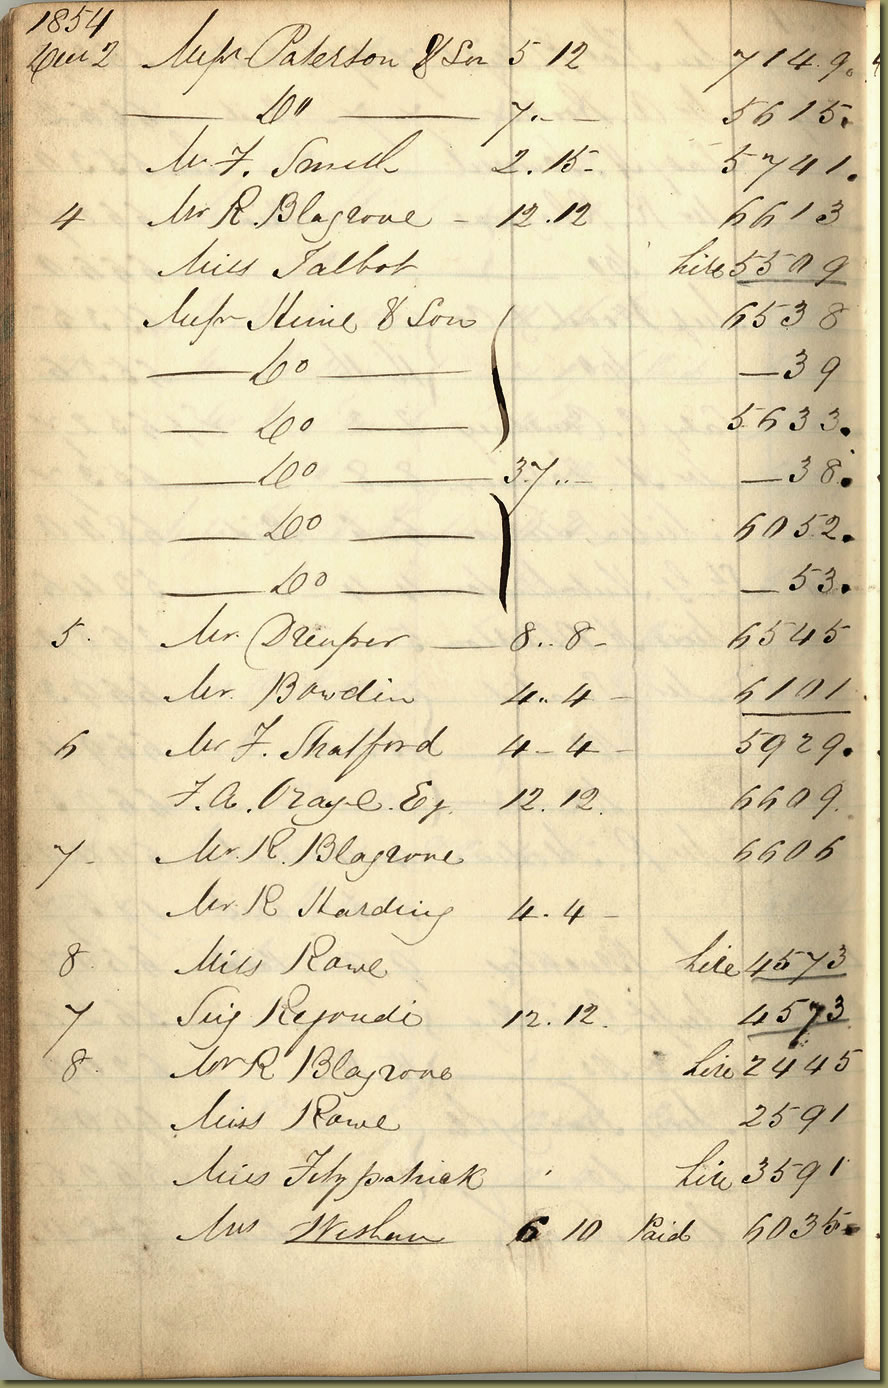 1854
Decr 2 Messrs Paterson & Son 5 12 7149.
Do 7.. 5615.
Mr F. Smith 2.15- 5741.
4 Mr R. Blagrove - 12.12 6613
Miss Talbot hire 5509
Messrs Hime & Son 6538
Do —39
Do 5633.
Do 37..- —38.
Do 6052.
Do —53.
5. Mr. 8..8- 6545
Mr. Bowdin 4..4- 6101
6 Mr F. Shatford 4-4- 5929.
F.A. Esq. 12.12. 6609.
7- Mr. R. Blagrove 6606
Mr R Harding 4.4-
8. Miss Rowe hire 4573
7 Sig Regondi 12.12. 4573
8. Mr R Blagrove hire 2445
Miss Rowe 2591
Miss Fitzpatrick hire 3591
Mrs 6 10 Paid 6035.